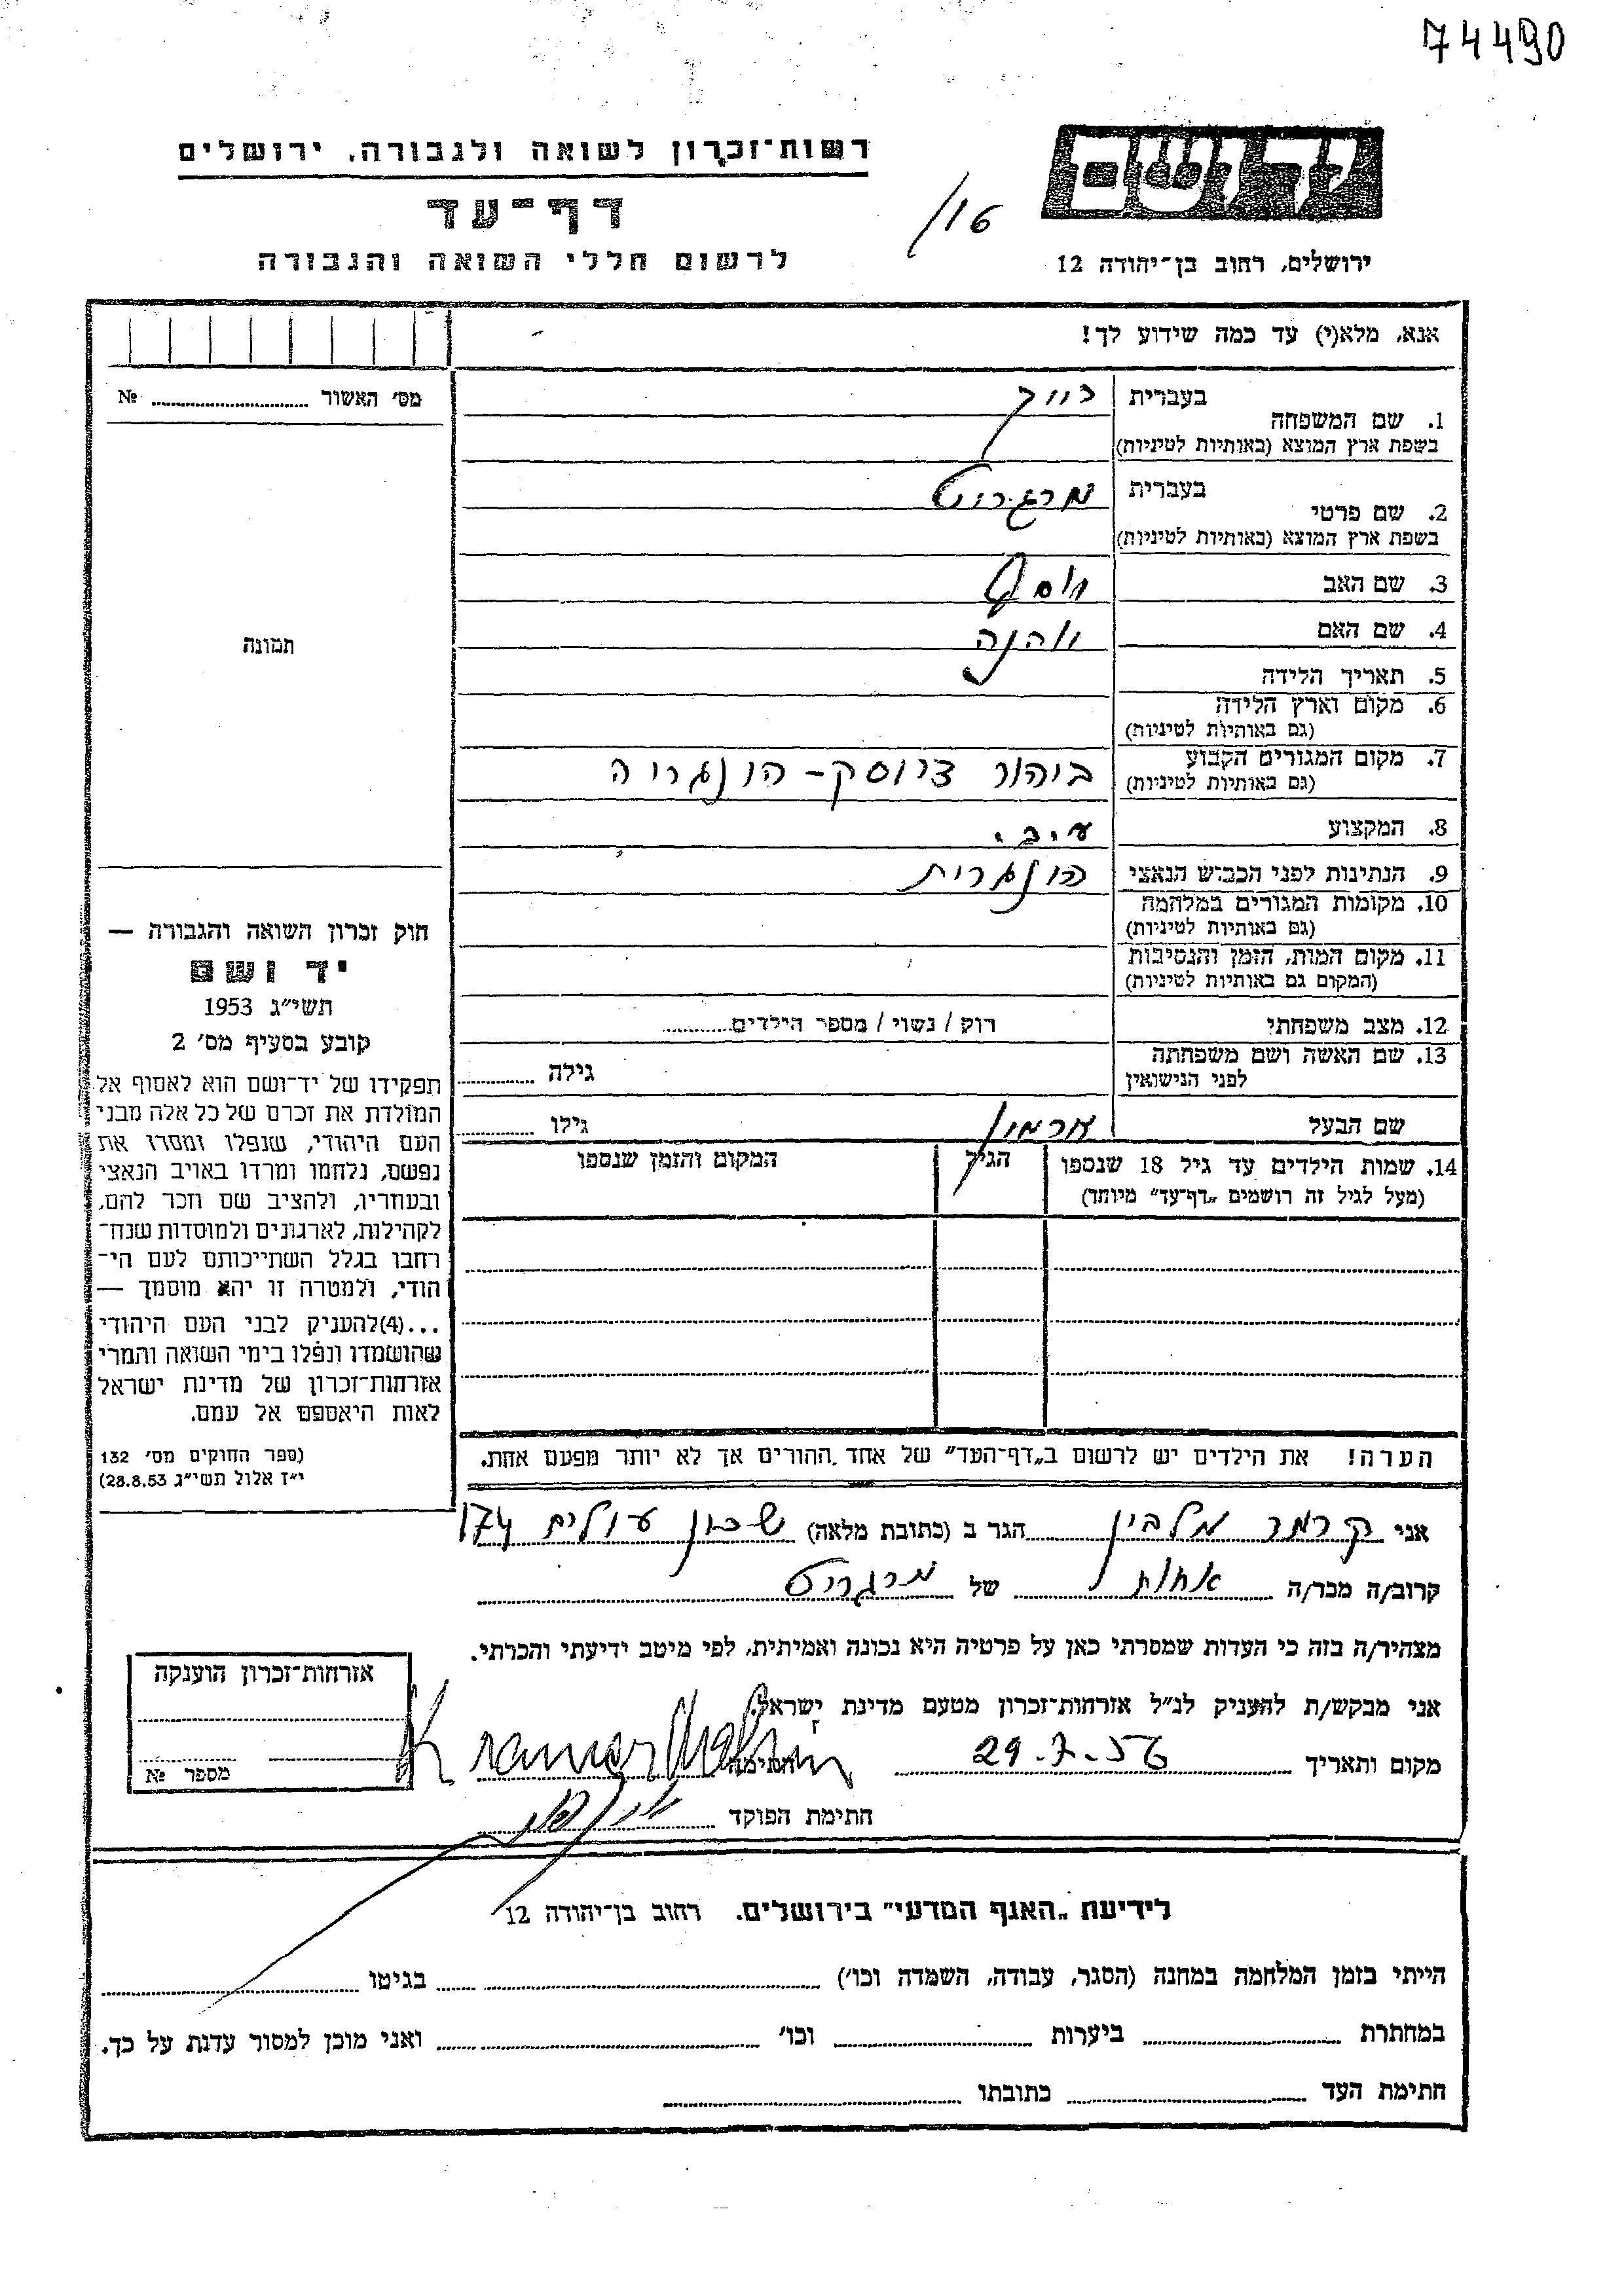 74490
רשות־זכרון לשואה ולגבורה, ירושלים
דף־עד
לרשום חללי השואה והגבורה
יד ושם
ירושלים, רחוב בן־יהודה 12
/16
אנא, מלא(י) עד כמה שידוע לך!
מס׳ האשור ........ №
תמונה
1. שם המשפחה
בעברית
בשפת ארץ המוצא (באותיות לטיניות)
2. שם פרטי
בעברית מרגריט
בשפת ארץ המוצא (באותיות לטיניות)
3. שם האב יוסף
4. שם האם יוהנה
5. תאריך הלידה
6. מקום וארץ הלידה
(גם באותיות לטיניות)
7. מקום המגורים הקבוע ביהור - הונגריה
(גם באותיות לטיניות)
8. המקצוע ע.ב.
9. הנתינות לפני הכבוש הנאצי הונגרית
10. מקומות המגורים במלחמה
(גם באותיות לטיניות)
11. מקום המות, הזמן והנסיבות
(המקום גם באותיות לטיניות)
12. מצב משפחתי רוק / נשוי / מספר הילדים........
13. שם האשה ושם משפחתה
לפני הנישואין גילה ........
שם הבעל ארמין גילו ........
14. שמות הילדים עד גיל 18 שנספו
(מעל לגיל זה רושמים „דף־עד״ מיוחד)
הגיל
המקום והזמן שנספו
הערה! את הילדים יש לרשום ב„דף־העד״ של אחד ההורים אך לא יותר מפעם אחת.
חוק זכרון השואה והגבורה —
יד ושם
תשי״ג 1953
קובע בסעיף מס׳ 2
תפקידו של יד־ושם הוא לאסוף אל
המולדת את זכרם של כל אלה מבני
העם היהודי, שנפלו ומסרו את
נפשם, נלחמו ומרדו באויב הנאצי
ובעוזריו, ולהציב שם וזכר להם,
לקהילות, לארגונים ולמוסדות שנח־
רחבו בגלל השתייכותם לעם הי־
הודי, ולמטרה זו יהא מוסמך —
...(4)להעניק לבני העם היהודי
שהושמדו ונפלו בימי השואה והמרי
אזרחות־זכרון של מדינת ישראל
לאות היאספם אל עמם.
(ספר החוקים מס׳ 132
י״ז אלול תשי״ג 28.8.53)
אני קרמר מלבין הגר ב (כתובת מלאה) שכון עולים 174
קרוב/ה מכר/ה אחות של מרגריט
מצהיר/ה בזה כי העדות שמסרתי כאן על פרטיה היא נכונה ואמיתית, לפי מיטב ידיעתי והכרתי.
אני מבקש/ת להעניק לנ״ל אזרחות־זכרון מטעם מדינת ישראל.
מקום ותאריך 29-7-56 חתימה Kramer Malvin
חתימת הפוקד
אזרחות־זכרון הוענקה
מספר №
לידיעת „האגף המדעי״ בירושלים, רחוב בן־יהודה 12
הייתי בזמן המלחמה במחנה (הסגר, עבודה, השמדה וכו׳) ........ בגיטו ........
במחתרת ........ ביערות ........ וכו׳ ........ ואני מוכן למסור עדות על כך.
חתימת העד ........ כתובתו ........